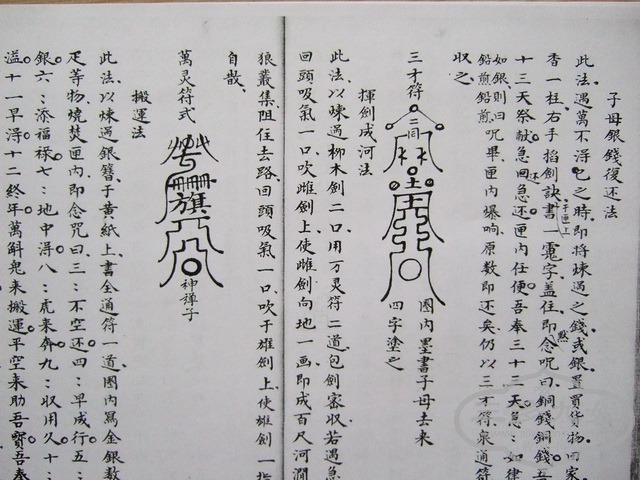 子母銀錢復还法
此法遇萬不得已之時即将煉過之錢或銀置買貨物回家
香一炷右手掐劍訣書一覔字盖住即念咒曰銅錢銅錢吾
默
于匣上
十三天祭献急回急还匣内任便吾奉三十三天急:如律
还
如銀則曰鉛煎鉛煎咒畢匣内爆响原数即还矣仍以三才符衆通符
収之
三才符
二同
土
圈内墨書子母去来
四字塗之
揮劍成河法
此法以煉過柳木劍二口用万灵符二道包劍密収若遇急
回頭吸氣一口吹雌劍上使雌劍向地一画即成百尺河澗
狼叢集阻住去路回頭吸氣一口吹于雄劍上使雄劍一指
自散
萬灵符式
旗
神禅子
搬運法
此法以煉過銀簪子黄紙上書全通符一道圈内寫金銀数
疋等物燒焚匣内即念咒曰三:不空还四:早成行五:
銀六:添福禄七:地中得八:虎来奔九:収用久十:
溢十一早得十二終年萬斛鬼来搬運平空来助吾寳吾奉